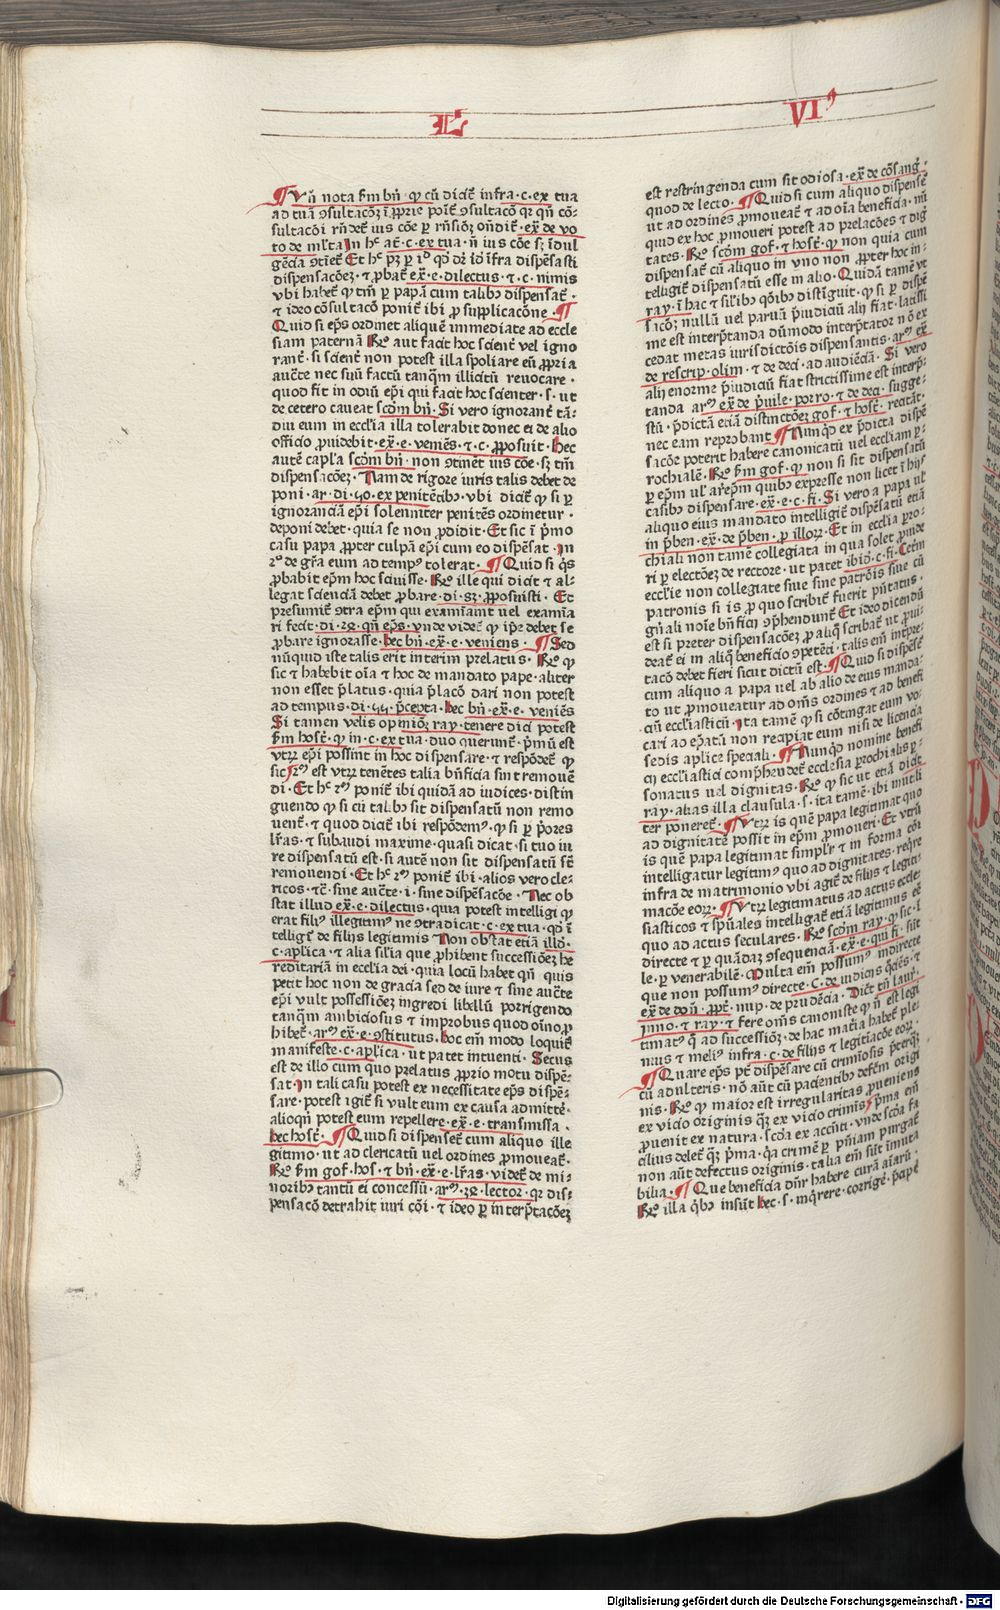 L VIꝰ
¶ Vñ nota ẜm bñ · ꝙ cũ diciť infra · c · ex tua
ad tuã ꝯsultacõꝫ ĩ ꝓprie poñť ꝯsultacõ qꝛ qñ cõ-
sultacõi rñdeť ius cõe ꝑ rñsiõꝫ oñdiť · ex̃ de vo
to de ml̃ta In hᶜ aũ · c · ex tua · ñ ius cõe sꝫ ĩdul
gẽcia ꝯtineť Et hᶜ pꝫ ꝑ iᵈ qᵈ dꝫ iᵈ ĩfra dispẽsasti
dispensacõeꝫ · ⁊ ꝓbať ex̃ · e · dilectus · ⁊ · c · nimis
vbi habeť ꝙ tm̃ ꝑ papã cum talibꝰ dispensať ·
⁊ ideo cõsultacõ poniť ibi ꝓ supplicacõne · ¶
Quid si ep̃s ordinet aliquẽ immediate ad eccle
siam paternã Rᵒ aut facit hoc scienť vel igno
ranť · si scienť non potest illa spoliare eũ ꝓpria
auc̃te nec suũ factũ tanqᷓm illicitũ reuocare ·
quod fit in odiũ ep̃i qui facit hoc scienter · s · ut
de cetero caueat scðm bñ · Si vero ignoranť tã-
diu eum in eccl̃ia illa tolerabit donec ei de alio
officio ꝓuidebit · ex̃ · e · veniẽs · ⁊ · c · ꝓposuit · hec
autẽ capl̃a scðm bñ · non ꝯtineť ius cõe · sꝫ tm̃
dispensacõeꝫ · Nam de rigore iuris talis debet de
poni · ar · di · 50 · ex penitẽtibꝰ · vbi diciť ꝙ si ꝑ
ignoranciã ep̃i solenniter penitẽs ordinetur ·
deponi debet · quia se non ꝓdidit · Et sic ĩ pᷓmo
casu papa ꝓpter culpã ep̃i cum eo dispẽsat · In
2ᵒ de gr̃a eum ad tempꝰ tolerat · ¶ Quid si qᷤs
ꝓbabit ep̃m hoc sciuisse · Rᵒ ille qui dicit ⁊ al-
legat scienciã debet ꝓbare · di · 82 · ꝓposuisti · Et
presumiť ꝯtra ep̃m qui examĩaṽit uel examĩa
ri fecit · di · 24 · qñ ep̃s · vnde videť ꝙ ip̃e debet se
ꝓbare ignorasse · hec bñ · ex̃ · e · veniens · ¶ Sed
nũquid iste talis erit interim prelatus · Rᵒ ꝙ
sic ⁊ habebit oĩa ⁊ hoc de mandato pape · aliter
non esset pᷓlatus · quia pᷓlacõ dari non potest
ad tempus · di · 55 · pᷓcepta · hec bñ · ex̃ · e · veniẽs
Si tamen velis opinioꝫ ray · tenere dici potest
ẜm hosť · ꝙ in · c · ex tua · duo querunť · pᷓmũ est
vtrꝫ ep̃i possint in hoc dispensare · ⁊ respõdeť ꝙ
sic · 2ᵐ est vtrꝫ tenẽtes talia bñficia sint remouẽ
di · Et hᶜ 2ᵐ poniť ibi quidã ad iudices · distin
guendo ꝙ si cũ talibꝰ sit dispensatũ non remo
uenť · ⁊ quod diciť ibi respõdemꝰ · ꝙ si ꝑ pᷓores
lr̃as · ⁊ subaudi maxime · quasi dicat · si tuo iu
re dispensatũ est · si autẽ non sit dispensatũ sẽt
remouendi · Et hᶜ 2ᵐ poniť ibi · alios vero cle-
ricos · ⁊c̃ · sine auc̃te · i · sine dispẽsacõe · Nec ob
stat illud ex̃ · e · dilectus · quia potest intelligi ꝙ
erat filiꝰ illegitimꝰ ne ꝯtradicat · c · ex tua · qᵈ ĩ
telligiť de filijs legitimis Non obstat etiã illᵈ ·
c · apl̃ica · ⁊ alia sil̃ia que ꝓhibent successiõeꝫ he
reditariã in eccl̃ia dei · quia locũ habet qñ quis
petit hoc non de gracia sed de iure ⁊ sine auc̃te
ep̃i vult possessiõeꝫ ingredi libellũ porrigendo
tanqᷓm ambiciosus ⁊ improbus quod oĩno ꝓ
hibeť · arᵐ ex̃ · e · ꝯstitutus · hoc em̃ modo loquiť
manifeste · c · apl̃ica · ut patet intuenti · Secus
est de illo cum quo prelatus ꝓprio motu dispẽ-
sat · In tali casu potest ex necessitate ep̃s dispẽ-
sare · potest igiť si vult eum ex causa admittẽ ·
alioqñ potest eum repellere · ex̃ · e · transmissa ·
hec hosť · ¶ Quid si dispenseť cum aliquo ille
gitimo · ut ad clericatũ uel ordines ꝓmoueať ·
Rᵒ ẜm gof · hos · ⁊ bñ · ex̃ · e · lr̃as · videť de mi-
noribꝰ tantũ ei concessũ · arᵐ · 34 · lector · qꝛ dis-
pensacõ detrahit iuri cõi · ⁊ ideo ꝑ interp̃tacõeꝫ
est restringenda cum sit odiosa · ex̃ de cõsang̃ ·
quod de lecto · ¶ Quid si cum aliquo dispenseť
ut ad ordines ꝓmoueať ⁊ ad oĩa beneficia · nũ
quid ex hoc ꝓmoueri potest ad prelacões ⁊ dig̃
tates · Rᵒ scðm gof · ⁊ hosť · ꝙ non quia cum
dispensať cũ aliquo in vno non ꝓpter hoc in-
telligiť dispensatũ esse in alio · Quidã tamẽ vt
ray · ĩ hac ⁊ sil̃ibꝰ qõibꝰ distĩguit · ꝙ si ꝑ dispẽ
sacõꝫ nullũ uel paruũ pᷓiudiciũ alij fiat · latissi
me est interp̃tanda dũmodo interp̃tator nõ ex
cedat metas iurisdictõis dispensantis · arᵐ ex̃
de rescrip · olim · ⁊ de deci · ad audiẽciã · Si vero
alij enorme pᷓiudiciũ fiat strictissime est interp̃-
tanda arᵐ ex̃ de pᷓuile · porro · ⁊ de deci · sugge-
stũ · pᷓdictã etiã distinctõeꝫ gof · ⁊ hosť · recitãt ·
nec eam reprobant ¶ Nunqᵈ ex pᷓdicta dispẽ
sacõe poterit habere canonicatũ uel eccl̃iam ꝑ-
rochialẽ · Rᵒ ẜm gof · ꝙ non si sit dispensatũ
ꝑ ep̃m ul̃ ar̃ep̃m quibꝰ expresse non licet ĩ hijs
casibꝰ dispensare · ex̃ · e · c · fi · Si vero a papa ul̃
aliquo eius mandato intelligiť dispẽsatũ etiã
in pᷓben · ex̃ · de pᷓben · ꝑ illoꝝ · Et in eccl̃ia ꝑro-
chiali non tamẽ collegiata in qua solet ꝓuide
ri ꝑ electõeꝫ de rectore · ut patet ibiᵈ · c · fi · Ceťm
eccl̃ie non collegiate siue sine patrõis siue cũ
patronis si is ꝓ quo scribiť fuerit pñtatus ·
gñali noĩe bñficij ꝯp̃hendunť Et ideo dicendũ
est si preter dispensacõeꝫ ꝓ aliqͦ scribať ut ꝓui-
deať ei in aliqͦ beneficio ꝯpetẽti · talis em̃ intpre-
tacõ debet fieri sicut dictũ est · ¶ Quid si dispẽsť
cum aliquo a papa uel ab alio de eius manda-
to ut ꝓmoueatur ad om̃s ordines ⁊ ad benefi
ciũ eccl̃iasticũ · Ita tamẽ ꝙ si cõtingat eum vo-
cari ad ep̃atũ non recipiat eum nisi de licencia
sedis aplice speciali · ¶ Nunqᵈ nomine benefi
cij eccl̃iastici comp̃hendeť ecclesia ꝑrochialis ꝑ-
sonatus uel dignitas · Rᵒ ꝙ sic ut etiã dicit
ray · alias illa clausula · s · ita tamẽ · ibi inutili
ter poneret · ¶ Vtrꝫ is quẽ papa legitimat quo
ad dignitatẽ possit in ep̃m ꝓmoueri · Et vtrũ
is quẽ papa legitimat simpl̃r ⁊ in forma cõi
intelligatur legitimꝰ quo ad dignitates · reqͥre
infra de matrimonio vbi agiť de filijs ⁊ legiti-
macõe eoꝝ · ¶ Vtrꝫ legitimatus ad actus eccle-
siasticos ⁊ spũales intelligať etiã legitimus eť
quo ad actus seculares · Rᵒ scðm ray · ꝙ sic · ĩ
directe ⁊ ꝑ quãdaꝫ ꝯsequenciã · ex̃ · e · qui fi · sũt
le · ꝑ venerabilẽ · Multa em̃ possumꝰ indirecte
que non possumꝰ directe · C · de iudicijs qͥcũqꝫ · ⁊
ex̃ de don̄ · ꝓpť · nup · de prudẽcia · Diciť tñ laur̃ ·
inno · ⁊ ray · ⁊ fere om̃s canoniste ꝙ ñ est legi
timatꝰ qᵒ ad successioꝫ · de hac mat̃ia habeť ple
nius ⁊ meliꝰ infra · c · de filijs ⁊ legitiacõe eoꝝ ·
¶ Quare ep̃s pť dispẽsare cũ crimĩosis pᷓterqᷓꝫ
cũ adulteris · nõ aũt cũ pacientibꝰ defc̃m origi
nis · Rᵒ ꝙ maior est irregularitas ꝓueniens
ex vicio originis qᷓꝫ ex vicio criminis · pᷓma em̃
ꝓuenit ex natura · scða ex accñti · vnde scða fa
cilius deleť qᷓꝫ pᷓma · qꝛ crimẽ ꝑ pñiam purgať
non aũt defectus originis · talia em̃ sũt ĩmuta
bilia · ¶ Que beneficia dñr habere curã aĩarũ ·
Rᵒ illa qͥbꝰ insũt hec · s · inqͥrere · corrigẽ · pape
Digitalisierung gefördert durch die Deutsche Forschungsgemeinschaft - DFG